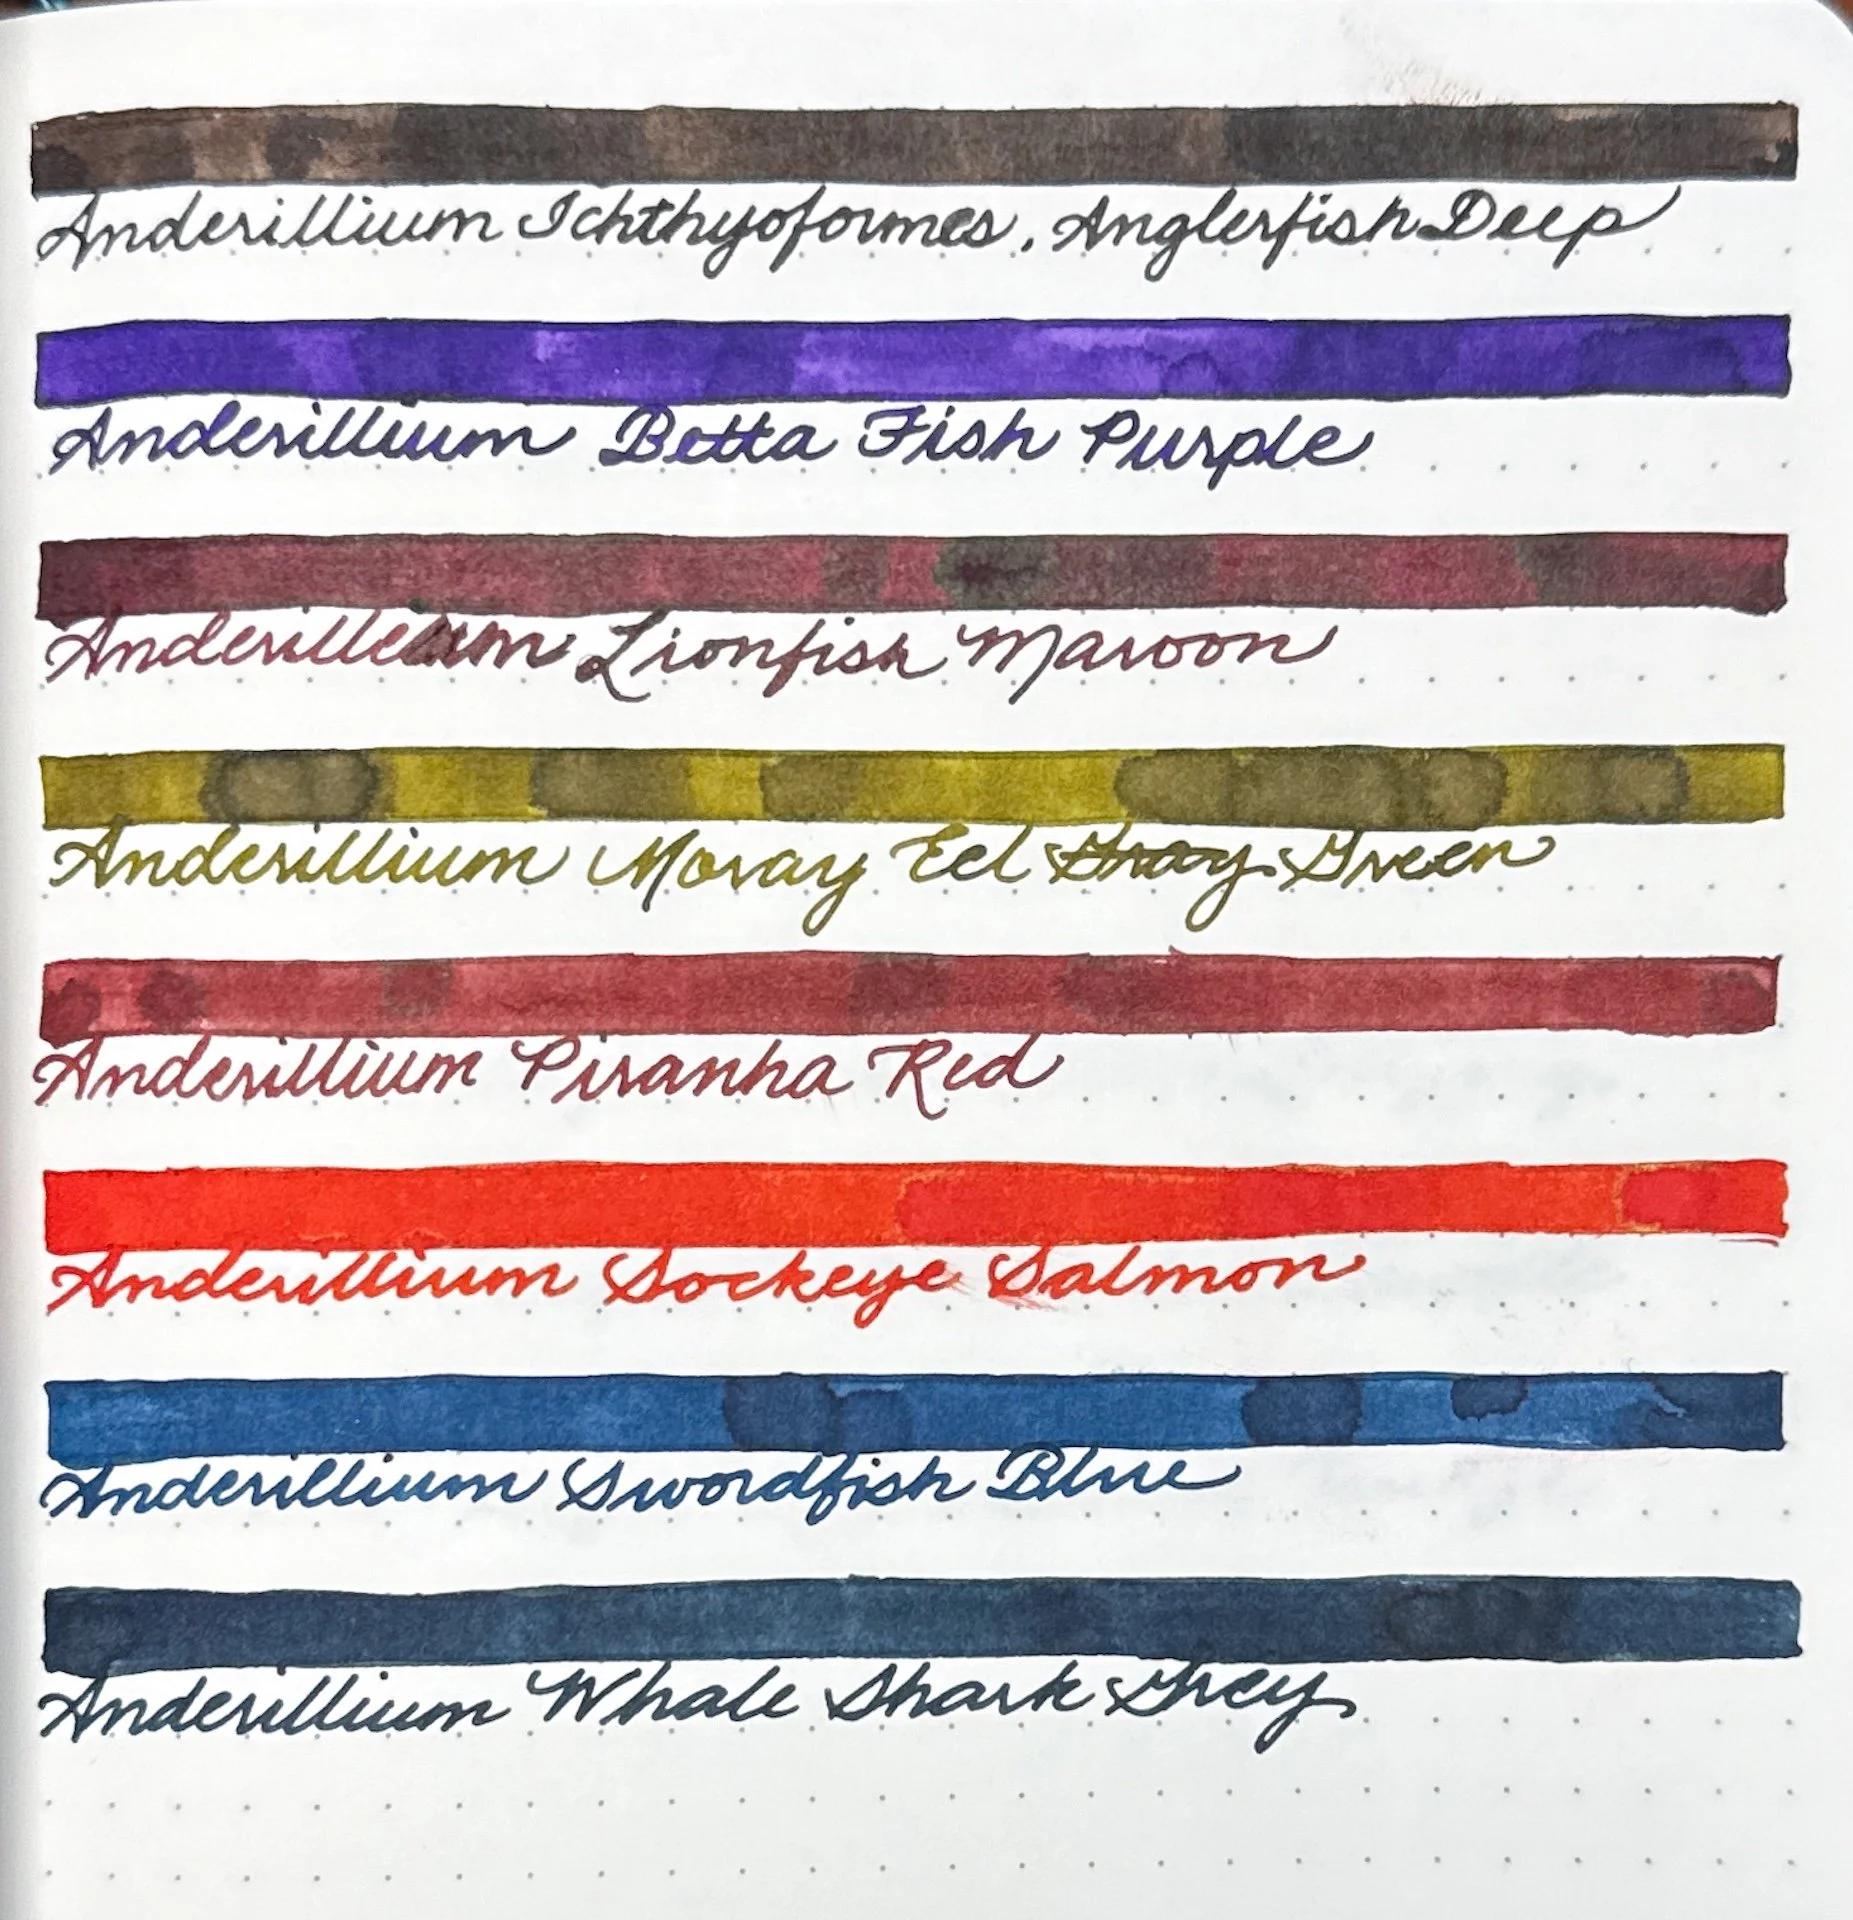 Anderillium Ichthyoformes, Anglerfish Deep
Anderillium Betta Fish Purple
Anderillium Lionfish Maroon
Anderillium Moray Eel Gray Green
Anderillium Piranha Red
Anderillium Sockeye Salmon
Anderillium Swordfish Blue
Anderillium Whale Shark Grey